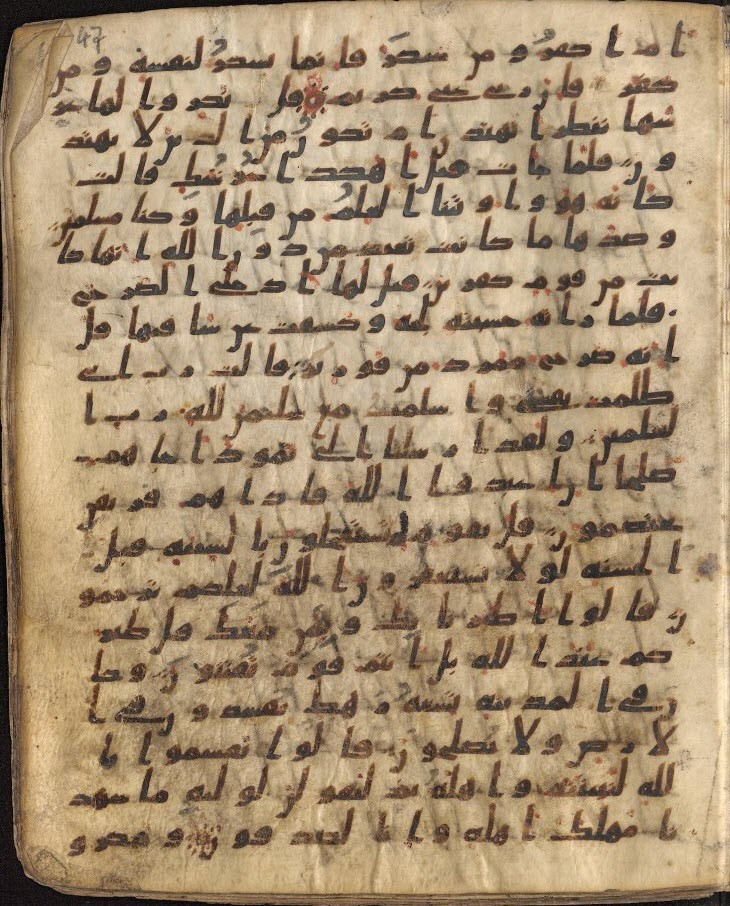 ا م ا كفر و من شكر فا نما يشكر لنفسه و من
كفر فا ن ربى غنى كريم قل نكر و ا لها عر
شها ننظر ا تهتد ى ا م تكو ن من ا لذ ين لا يهتد
و ن فلما جا ت قيل ا هكذ ا عر شك قا لت
كا نه هو و ا و تينا ا لعلم من قبلها و كنا مسلمين
و صد ها ما كا نت تعبد من د و ن ا لله ا نها كا
نت من قو م كفر ين قيل لها ا د خلى ا لصر ح
فلما ر ا ته حسبته لجه و كشفت عن سا قيها قل
ا نه صر ح ممر د من قو ر ير قا لت ر ب ا نى
ظلمت نفسى و ا سلمت مع سليمن لله ر ب ا
لعلمين و لقد ا ر سلنا ا لى ثمو د ا خا هم
صلحا ا ن ا عبد و ا ا لله فا ذ ا هم فر يقن
يختصمو ن قل يقو م لم تستعجلو ن با لسيئه قبل
ا لحسنه لو لا تستغفر و ن ا لله لعلكم تر حمو
ن قا لو ا ا طير نا بك و بمن معك قل طير
كم عند ا لله بل ا نتم قو م تفتنو ن و كا
ن فى ا لمد ينه تسعه ر هط يفسد و ن فى ا
لا ر ض و لا يصلحو ن قا لو ا تقسمو ا با
لله لنبيتنه و ا هله ثم لنقو لن لو ليه ما شهد
نا مهلك ا هله و ا نا لصد قو ن و مكر و